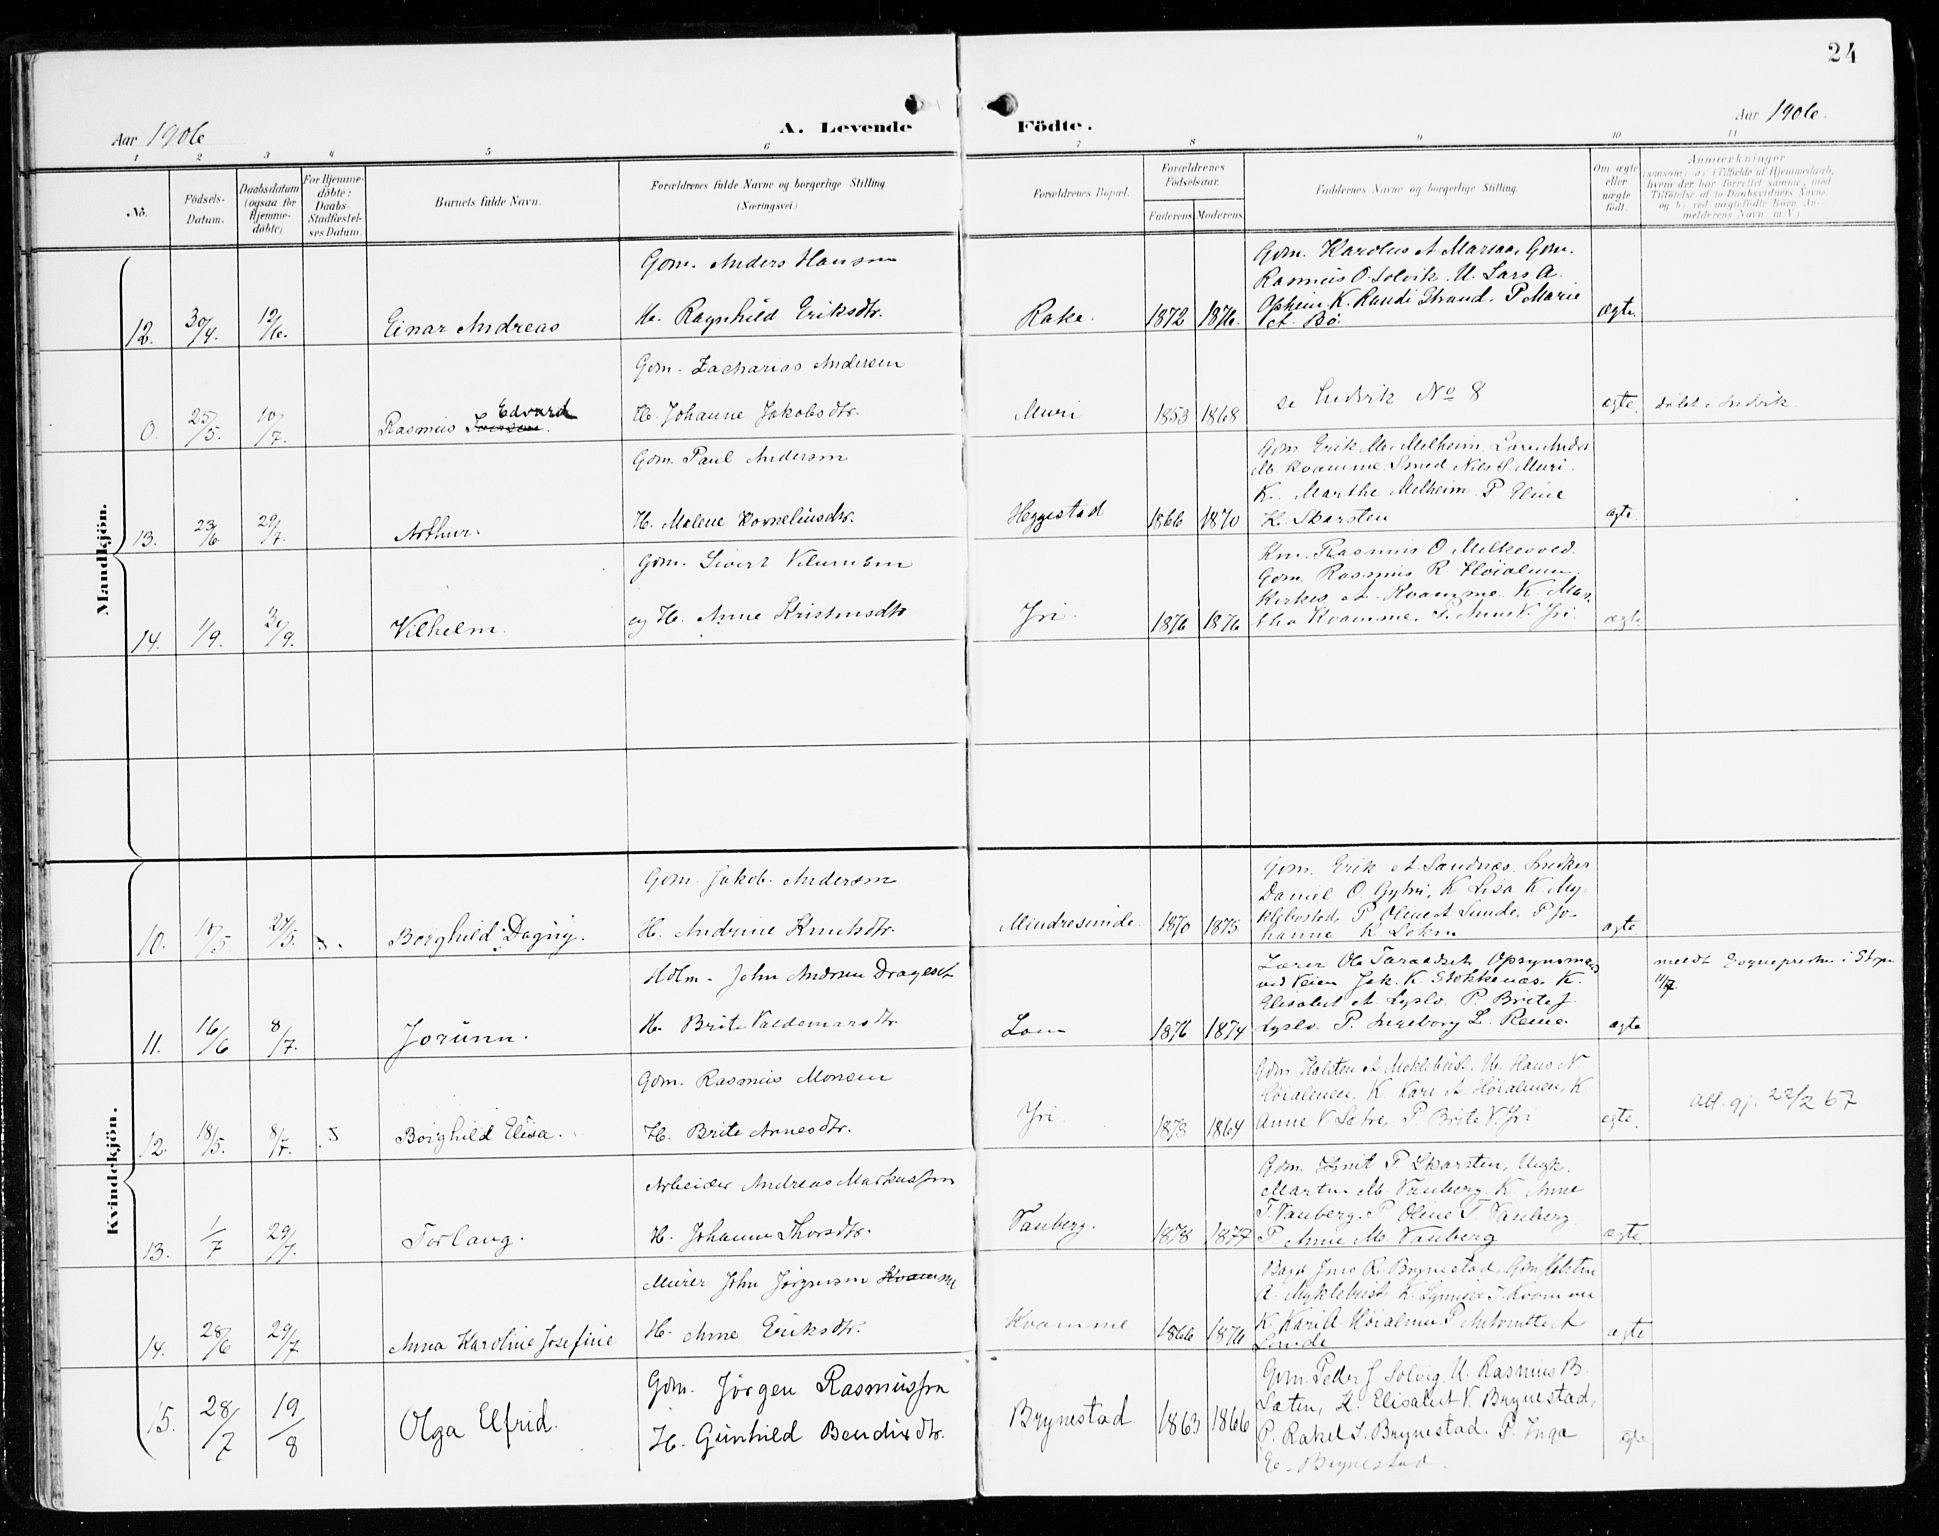 24
Aar 1906
A. Levende
Födte.
Aar 1906.
1 2 3 4 5 6 7 8 9 10 11
No.
Födsels-
Datum.
Daabsdatum
(ogsaa for
Hjemme-
döbte)
For Hjemme-
döbte:
Daabs-
Stadfæstel-
ses Datum.
Barnets fulde Navn.
Forældrenes fulde Navne og borgerlige Stilling
(Næringsvei)
Forældrenes Bopæl.
Forældrenes
Födselsaar.
Faderens. Moderens.
Faddernes Navne og borgerlige Stilling.
Om ægte
eller
uægte
födt.
Anmærkninger
(saasom: a) i Tilfælde af Hjemmedaab,
hvem der har forrettet samme, med
Tilföielse af to Daabsvidners Navne,
og b) ved uægtefödte Börn An-
melderens Navn m. V.)
Mandkjön.
12. 30/4. 12/6. Einar Andreas
Gdm. Anders Hansen
H. Ragnhild Eriksdtr.
Rake. 1872 1876.
Gdm. Karolus A Marsaa, Gdm.
Rasmus O. Solvik. U. Lars A.
Opheim. K. Randi Strand. P. Marie
A. Bö.
ægte.
0. 25/5. 10/7. Rasmus Edvard
Gdm. Zacharias Andersen
H. Johanne Jakobsdtr.
Muri 1853 1868
se Indvik No 8
ægte. döbt i Indvik.
13. 23/6. 29/7. Arthur.
Gdm. Paul Andersen
H. Malene Korneliusdtr.
Heggestad 1866 1870
Gdm. Erik M. Melheim
M. Kvamme. Smed Nils S. Muri.
K. Marthe Melheim. P. Eline
K. Skarsten
ægte.
14. 1/9. /9. Vilhelm.
Gdm. Sivert Vilumsen
og H. Anne Kristensdtr
Yri. 1876 1876
Km. Rasmus O Melkevold.
Gdm. Rasmus R. Höialmen.
Kirkes. A. Kvamme. K. Mar-
tha Kvamme. P. Anne V. Yri.
ægte
Kvindekjön.
10. 10/5 24/5. Borghild Dagny.
Gdm. Jakob Andersen
H. Andrine Knutsdtr.
Mindresunde. 1870 1875
Gdm. Erik A. Sandnæs. Snedker
Daniel O Gytri, K. Lisa K. My-
klebostad. P. Oline A Sunde. P. Jo-
hanne K Loken
ægte
11. 16/6 8/7. Jorunn.
Hdlm. John Andreas Drageset
H. Brite Valdemarsdtr.
Loen 1876 1874
Lærer Ole Taraldset. Opsynsmand
ved Veien Jak. K. Stokkenæs. K.
Elisabet A. Lyslo. P. Brite J.
Lyslo. P. Ingeborg L. Rene.
ægte
meldt Sogneprsten i Stryn
11/7.
12. 18/5. 8/7. Borghild Elisa.
Gdm. Rasmus Monsen
H. Brite Arnesdtr.
Yri. 1873 1864
Gdm. Halsten A. Myklebust. U. Hans N
Höialmen, K. Kari A Höialmen, K
Anne V. Sætre, P. Brite V. Yri
ægte.
att. gj. 22/2 67
13. 1/7 29/7. Torlaug.
Arbeider Andreas Markussen
H. Johanne Thorsdtr.
Vanberg. 1878 1877
Gdm. Knut P. Skarsten, Ungk.
Martin M. Vanberg. K. Anne
T. Vanberg. P. Oline T. Vanberg.
P. Anne M. Vanberg
ægte.
14. 28/6 29/7 Anna Karoline Josefine
Murer John Jörgensen Kvamme
H. Anne Eriksdtr.
Kvamme 1866 1876
Jens R. Brynestad, Gdm Halsten
A. Myklebust K. J. Kvamme
K. Kari A Höialmen P. Antonette A
Sunde
ægte
15. 28/7 19/8 Olga Elfrid.
Gdm. Jörgen Rasmussen
H. Gunhild Bendixdtr.
Brynestad 1863 1866
Gdm. Peder J. Solvig, U. Rasmus B.
Sæten, K. Elisabet V. Brynestad,
P. Rakel S. Brynestad. P. Inga
E. Brynestad.
ægte